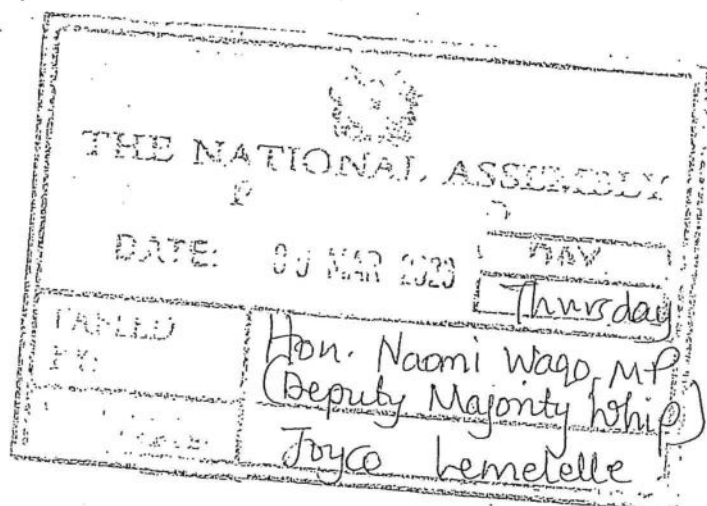 THE NATIONAL ASSEMBLY
DATE: MAR 2023 DAY
Thursday
TABLED Hon. Naomi Waqo, MP
BY: (Deputy Majority Whip)
Joyce